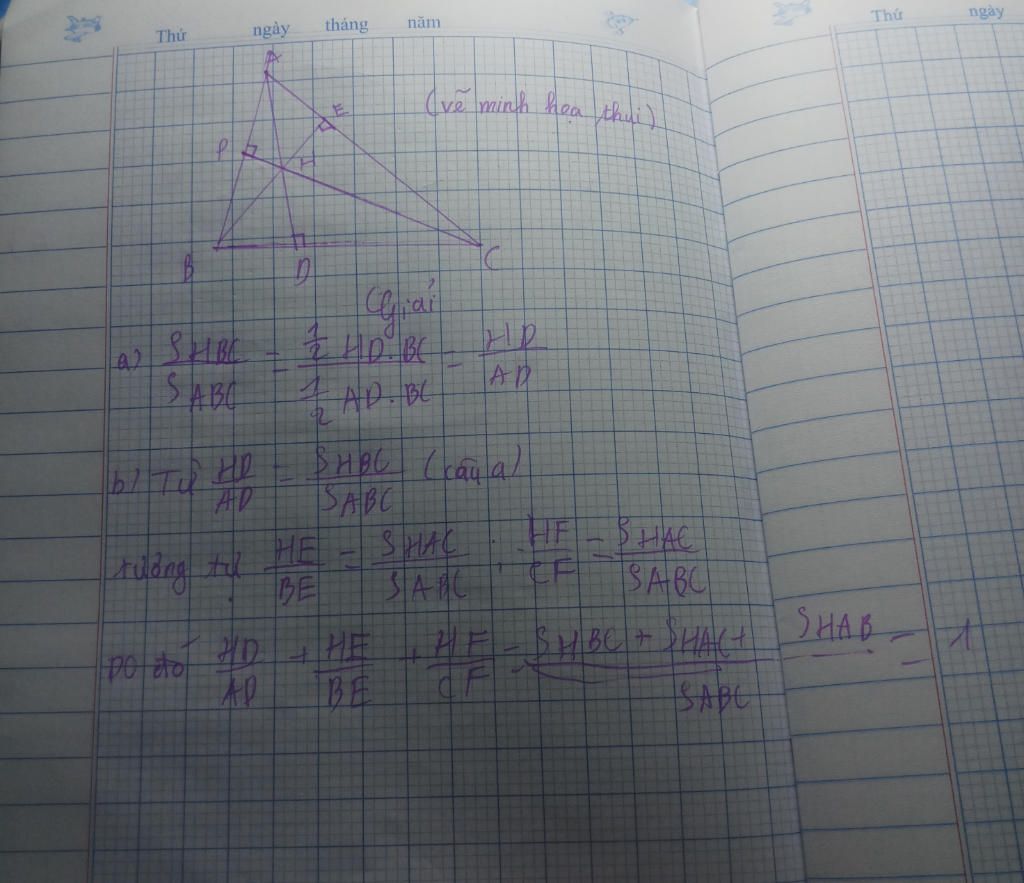 Thứ ngày tháng năm
Thứ ngày
A
E
(vẽ minh họa thui)
P
H
B D C
Giải
a) SHBC / SABC = 1/2 HD.BC / 1/2 AD.BC = HD / AD
b) Từ HD / AD = SHBC / SABC (câu a)
tương tự HE / BE = SHAC / SABC ; HF / CF = SHAC / SABC
Do đó HD / AD + HE / BE + HF / CF = SHBC + SHAC + SHAB / SABC = 1